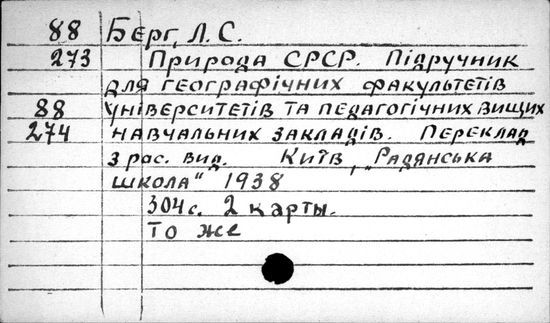 88 Берг, Л. С.
273 Природа СРСР. Підручник
для географічних факультетів
88 університетів та педагогічних вищих
274 навчальних закладів. Переклад
з рос. вид. Київ, „Радянська
школа" 1938
304 с. 2 карты.
То же